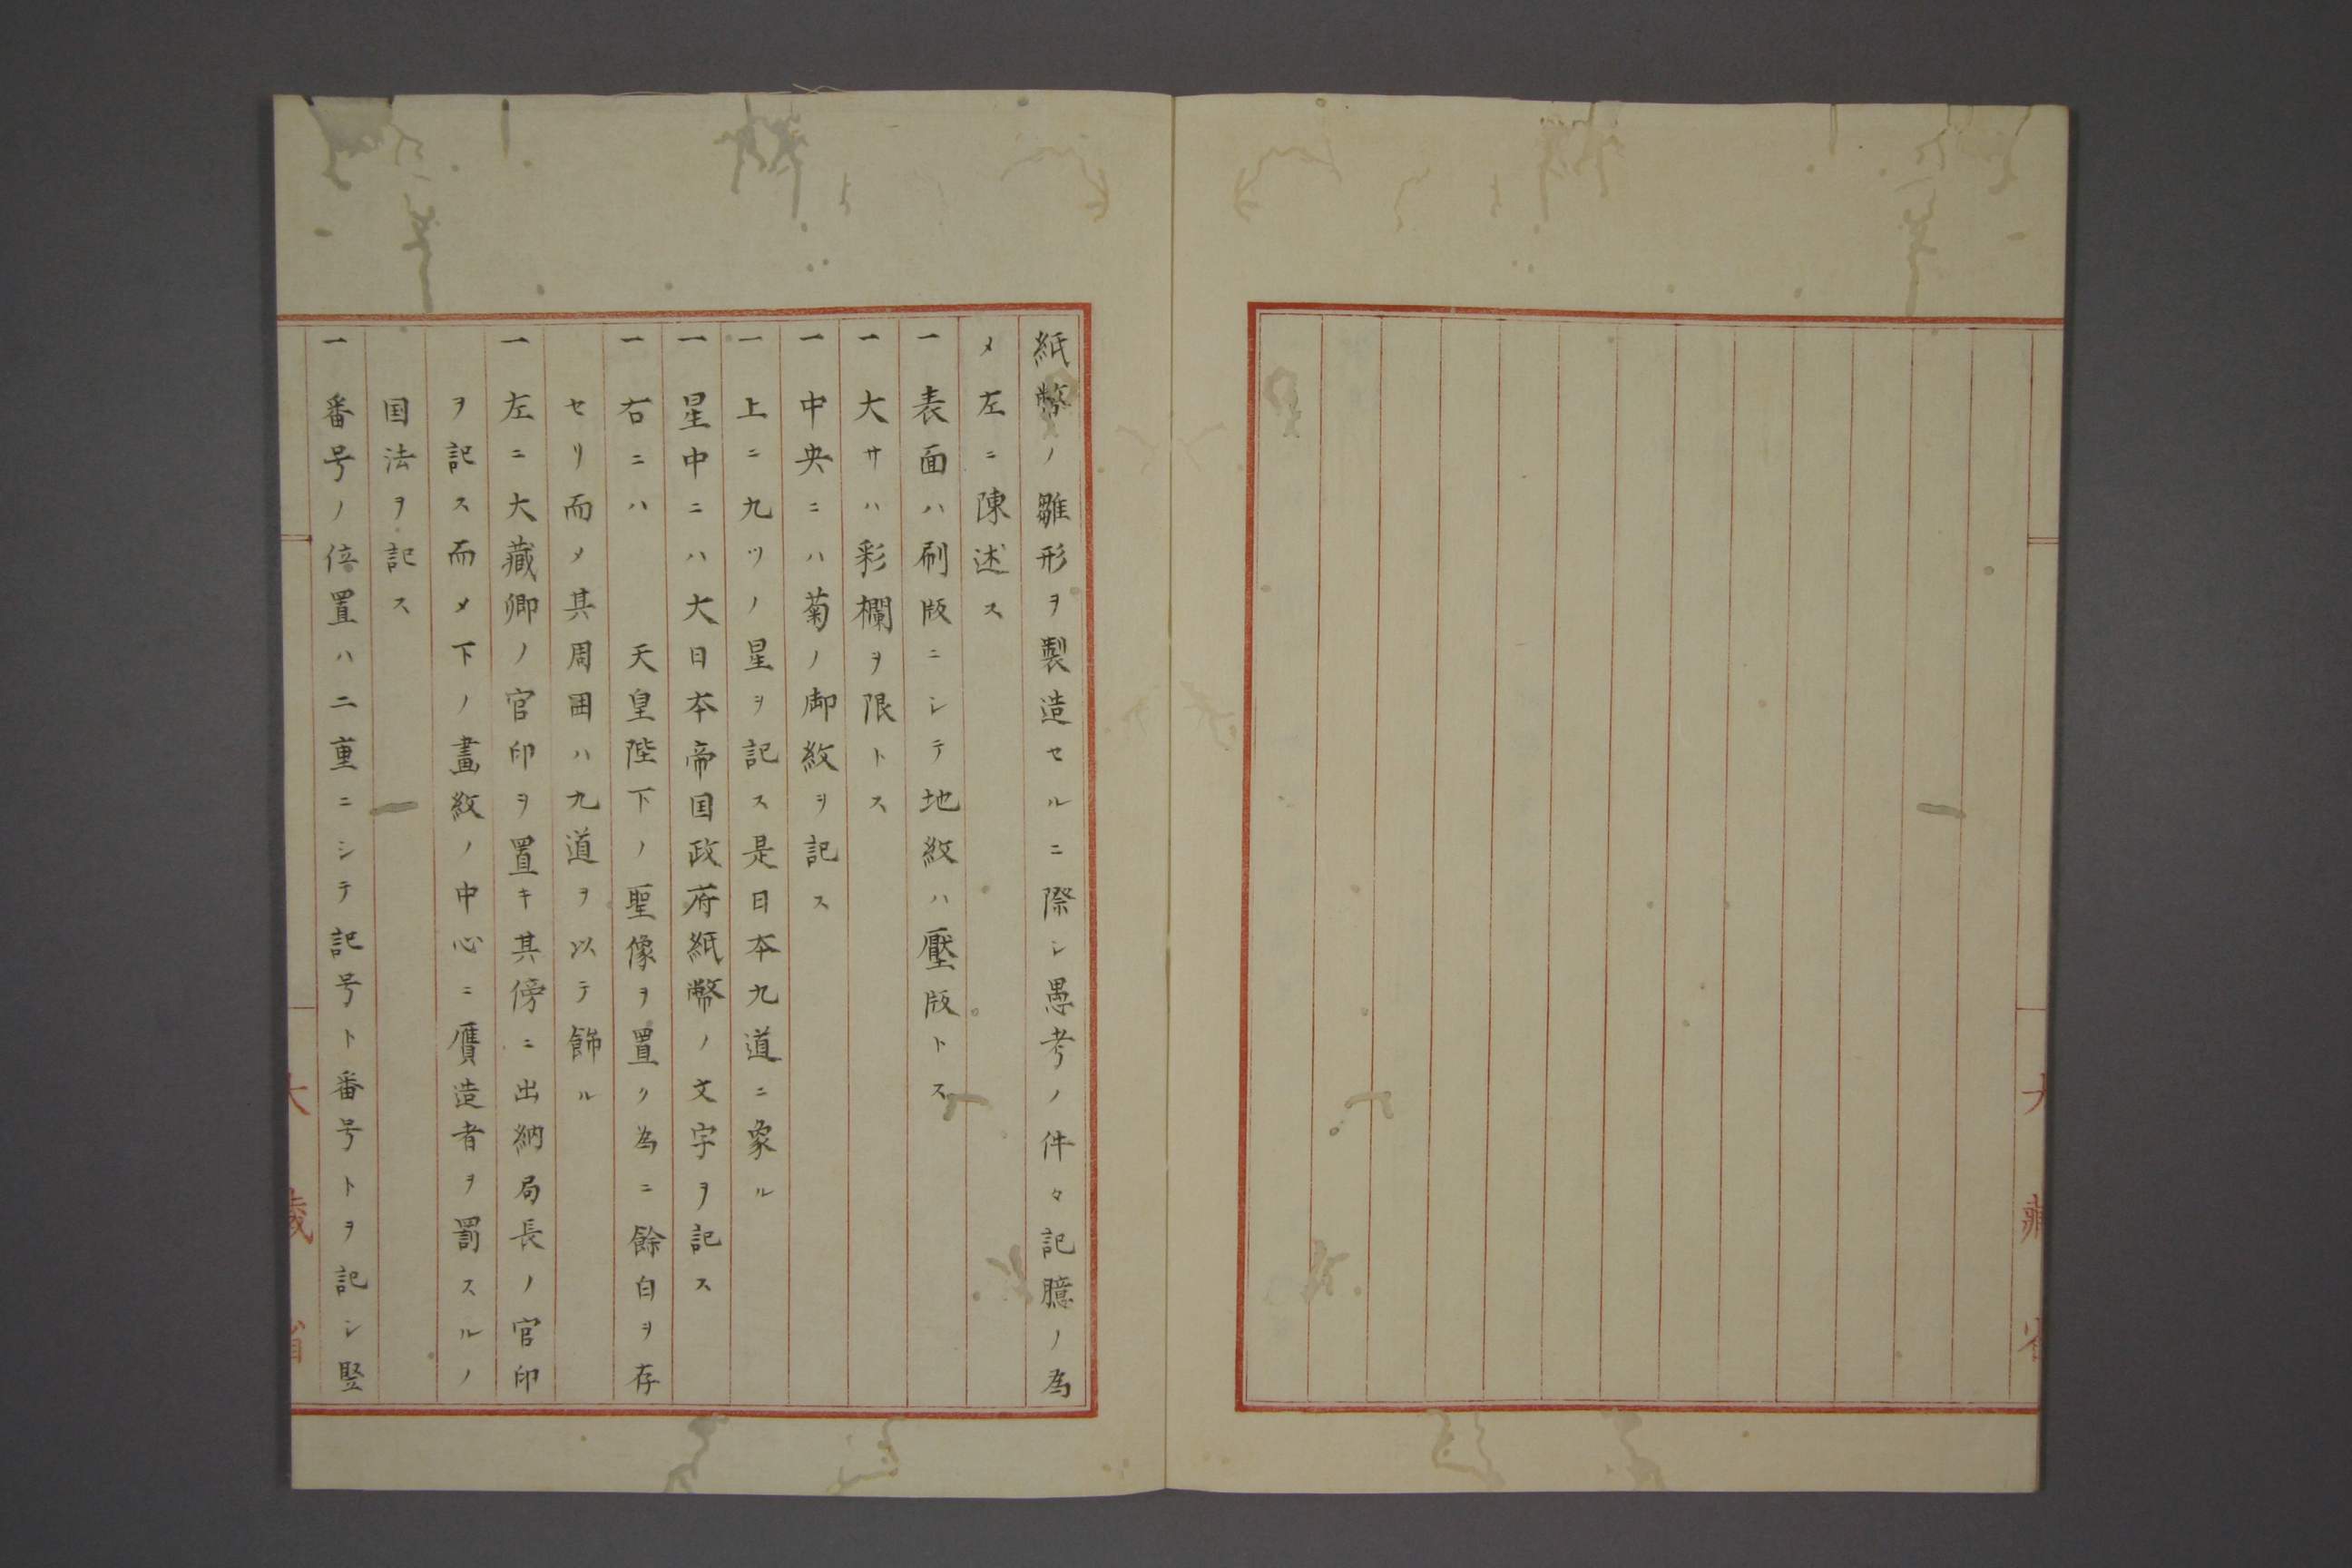 紙幣ノ雛形ヲ製造セルニ際シ愚考ノ件々記臆ノ為
メ左ニ陳述ス
一表面ハ刷版ニシテ地紋ハ壓版トス
一大サハ彩欄ヲ限トス
一中央ニハ菊ノ御紋ヲ記ス
一上ニ九ツノ星ヲ記ス是日本九道ニ象ル
一星中ニハ大日本帝国政府紙幣ノ文字ヲ記ス
一右ニハ　天皇陛下ノ聖像ヲ置ク為ニ餘白ヲ存
セリ而メ其周囲ハ九道ヲ以テ飾ル
一左ニ大藏卿ノ官印ヲ置キ其傍ニ出納局長ノ官印
ヲ記ス而メ下ノ畫紋ノ中心ニ贋造者ヲ罰スルノ
国法ヲ記ス
一番号ノ位置ハ二重ニシテ記号ト番号トヲ記シ竪
大藏省